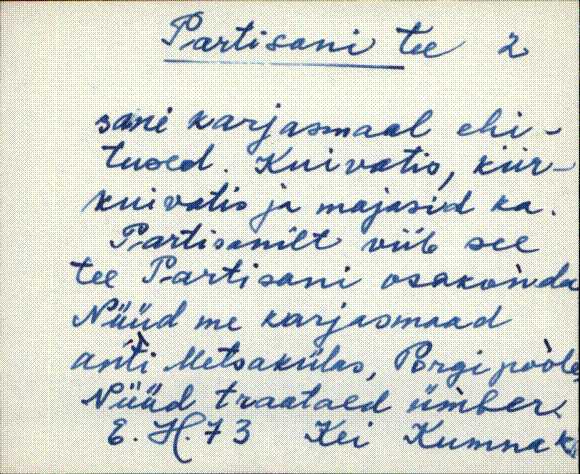 Partisani tee 2
sani karjasmaal ehi-
tused. Kuivatis, kiir-
kuivatis ja majasid ka.
Partisanilt viib see
tee Partisani osakonda
Nüüd me karjasmaad
anti Metsakülas, Pòrgi poole
Nüüd traataed ümber.
E. H. 73 Kei Kumna k.